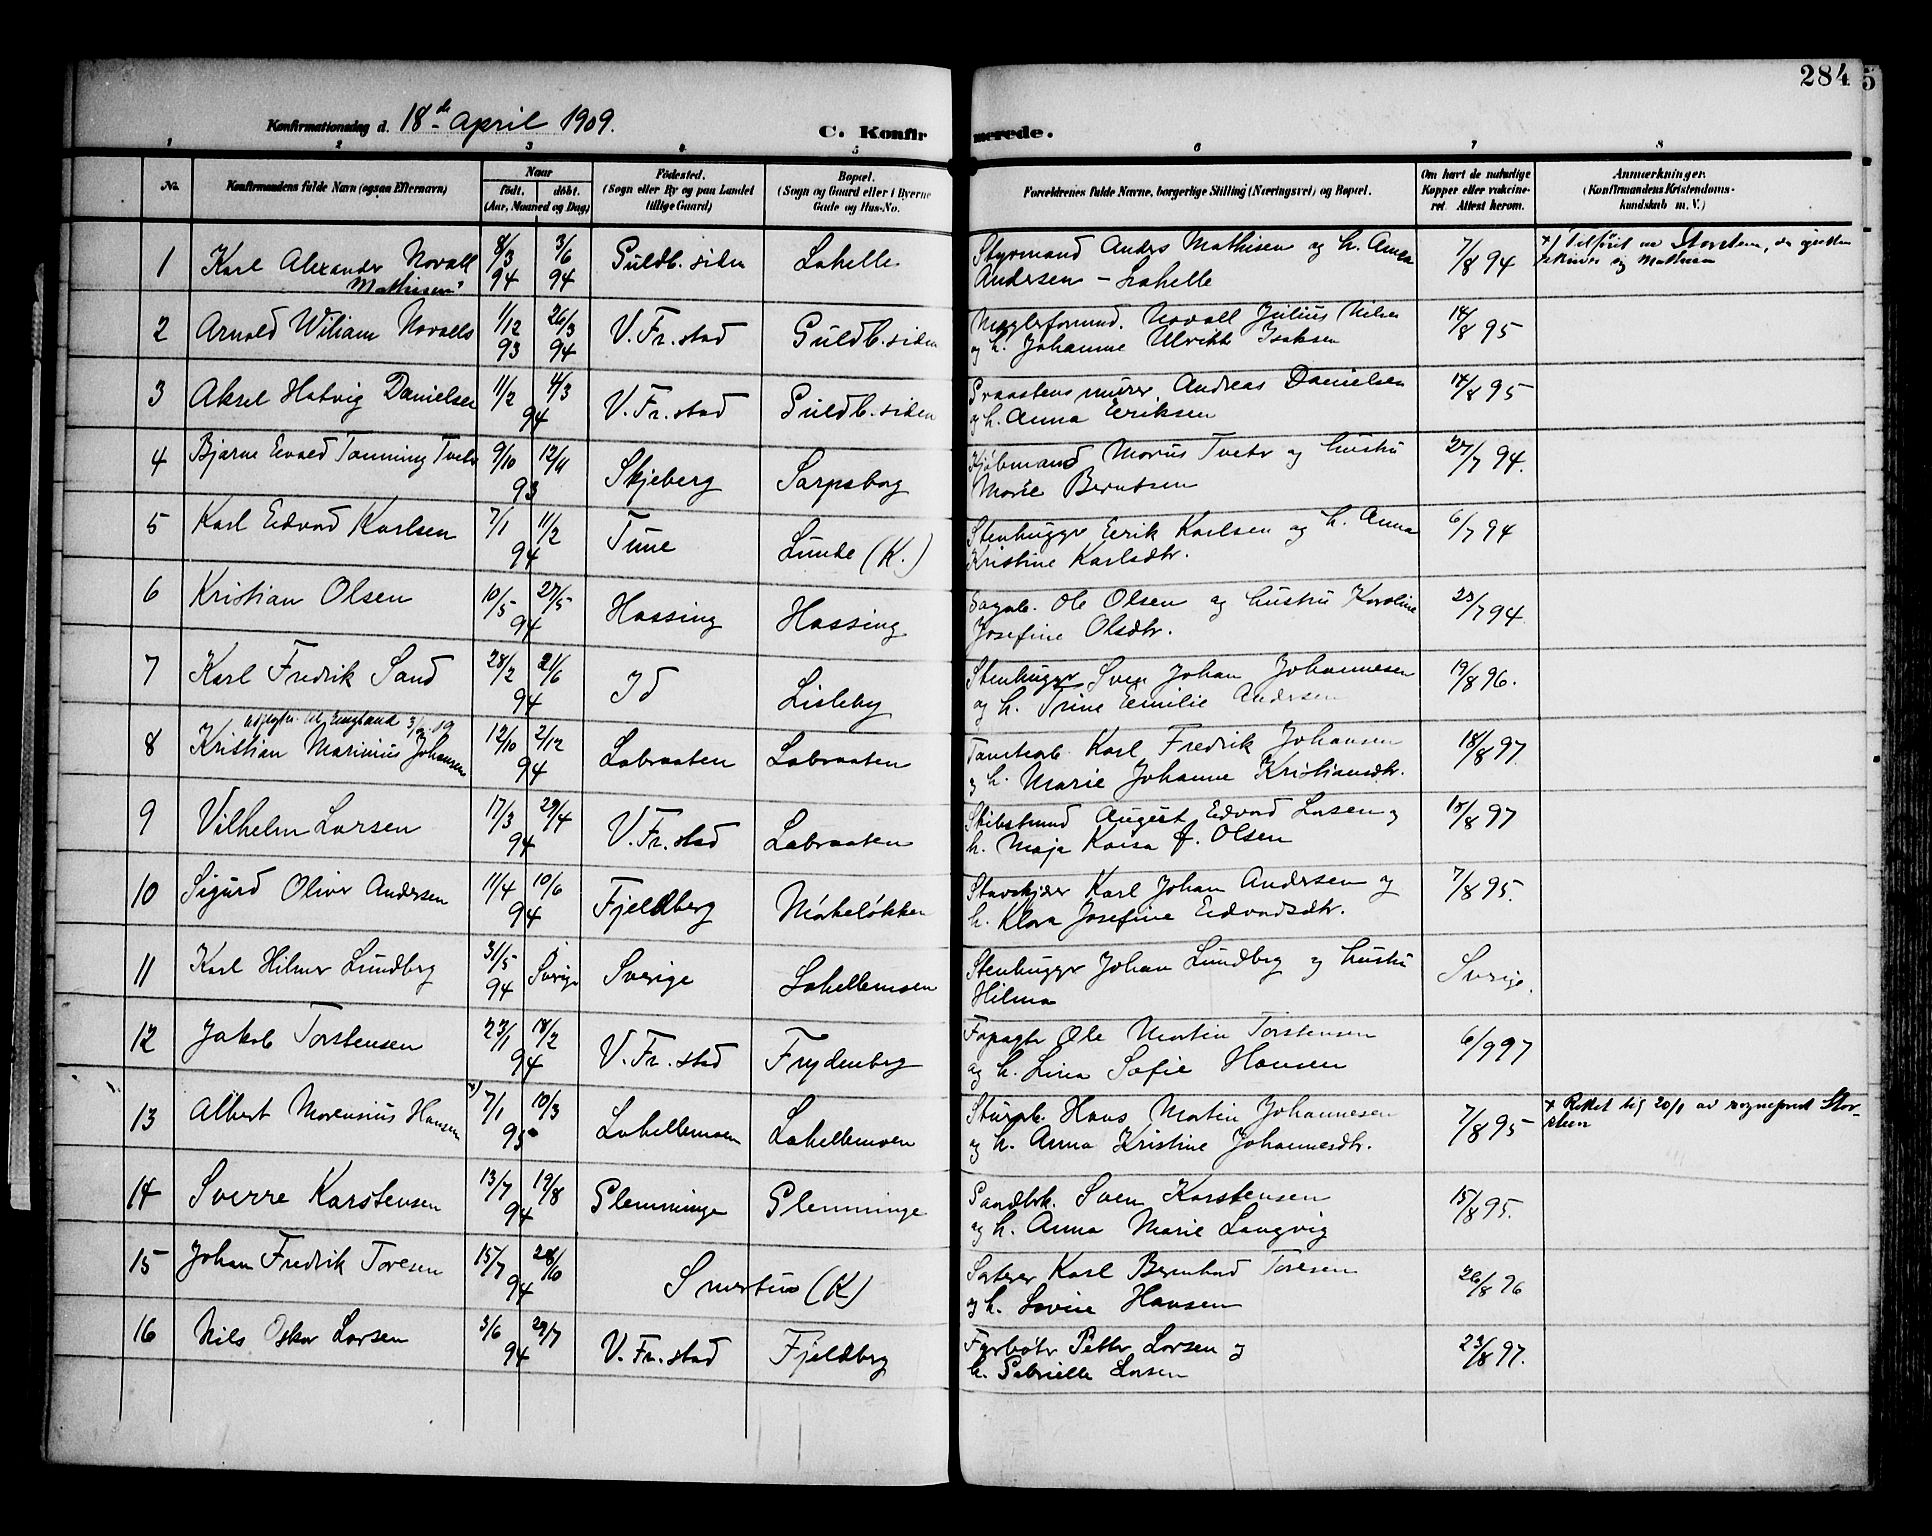 284
5
Konfirmationsdag d. 18de April 1909.
C. Konfir
merede.
1 2 3 4 5 6 7 8
No.
Konfirmandens fulde Navn (ogsaa Efternavn)
Naar
født. døbt.
(Aar, Maaned og Dag)
Fødested.
(Sogn eller By og paa Landet
tillige Gaard)
Bopæl.
(Sogn og Gaard eller i Byerne
Gade og Hus-No.
Forældrenes fulde Navne, borgerlige Stilling (Næringsvei) og Bopæl.
Om havt de naturlige
Kopper eller vakcine-
ret Attest herom.
Anmærkninger.
(Konfirmandens Kristendoms-
kundskab m. V.)
1 Karl Alexander Norvall 8/3 3/6 Guldb. siden Lahelle Styrmand Anders Mathisen og h. Anna 7/8 94
Mathisen 94 94 Andersen – Lahelle
2 Arnold Wiliam Norvalls 1/12 26/3 V. Fr. stad Guldb. siden Norvall Julius Nilsen 14/8 95
93 94 og h. Johanne Ulrikke Isaksen
3 Aksel Hatvig Danielsen 11/2 4/3 V. Fr. stad Guldb. siden Graastensmurer Andreas Danielsen 14/8 95
94 og h. Anna Eriksen
4 Bjarne Evald Tanning Tveter 9/10 12/11 Skjeberg Sarpsborg Kjøbmand Morus Tveter og hustru 27/7 94.
93 Marie Berntsen
5 Karl Edvard Karlsen 7/1 11/2 Tune Lunde (K.) Stenhugger Erik Karlsen og h. Anna 6/7 94
94 Kristine Karlsdtr.
6 Kristian Olsen 10/5 27/5 Hassing Hassing Ole Olsen og hustru Karoline 23/7 94.
94 Josefine Olsdtr.
7 Karl Fredrik Sand 28/2 21/6 Id Lisleby Stenhugger Sven Johan Johannesen 19/8 96.
94 og h. Trine Emilie Andersen
England
8 Kristian Marinius Johansen 12/10 2/12 Labraaten Labraaten Karl Fredrik Johansen 18/8 97
94 og h. Marie Johanne Kristiansdtr.
9 Vilhelm Larsen 17/3 29/4 V. Fr. stad Labraaten August Edvard Larsen og 18/8 97
94 h. Maja Kaisa f. Olsen
10 Sigurd Oliver Andersen 11/4 10/6 Fjeldberg Mørkeløkken Stavskjærer Karl Johan Andersen og 7/8 95.
94 h. Klara Josefine Edvardsdtr.
11 Karl Hilmer Lundberg 31/5 Sverige Sverige Lahellemoen Stenhugger Johan Lundberg og hustru Sverige.
94 Hilma
12 Jakob Torstensen 23/1 18/2 V. Fr. stad Frydenberg Ole Martin Torstensen 6/9 97
94 og h. Lina Sofie Hansen
13 Albert Morensius Hansen x) 7/1 10/3 Lahellemoen Lahellemoen Hans Martin Johannesen 7/8 95 x Rettet 20/1 av sogneprest Stor-
95 og h. Anna Kristine Johannesdtr. steen
14 Sverre Karstensen 13/7 19/8 Glemminge Glemminge Sven Karstensen 15/8 95.
94 og h. Anna Marie Langvig
15 Johan Fredrik Toresen 15/7 28/10 Smertu (K) Karl Bernhard Toresen 26/8 96
94 og h. Lovise Hansen
16 Nils Oskar Larsen 3/6 29/7 V. Fr. stad Fjeldberg Fyrbøter Petter Larsen og 23/8 97.
94 h. Gabrielle Larsen